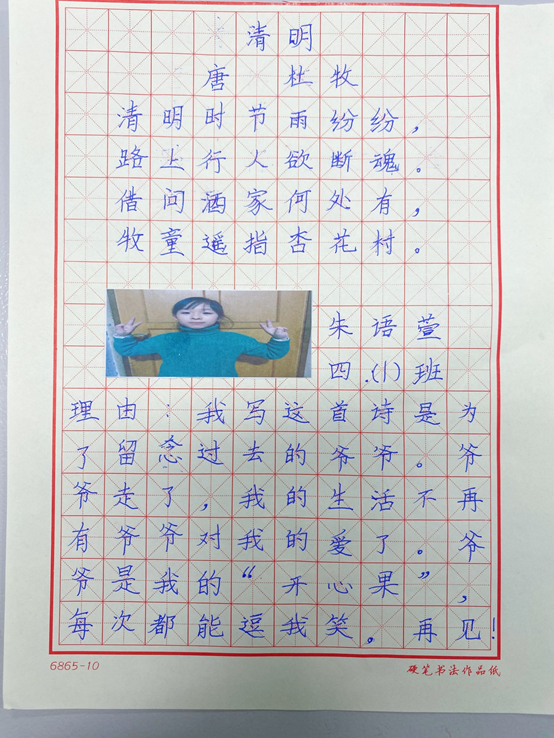 清明
唐 杜牧
清明时节雨纷纷，
路上行人欲断魂。
借问酒家何处有，
牧童遥指杏花村。
朱语萱
四.(1)班
理由：我写这首诗是为
了留念过去的爷爷。爷
爷走了，我的生活不再
有爷爷对我的爱了。爷
爷是我的“开心果”，
每次都能逗我笑。再见！
6865-10
硬笔书法作品纸